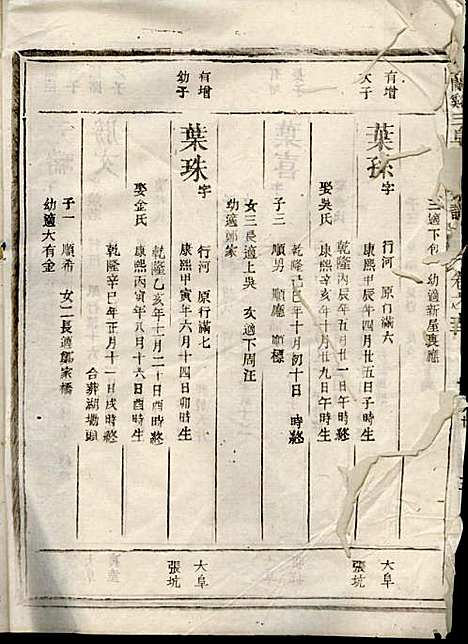 三適下包 幼適新屋裏應
有增
次子
葉珎 字 行河 原行滿六
康熙甲辰年四月廿五日子時生
乾隆丙辰年五月廿一日午時終
娶吳氏 康熙辛亥年十月廿九日午時生
乾隆己巳年十月初十日 時終
子三 順男 順 順標
女三長適上吳 次適下周汪
幼適鄭家
大阜
張坑
有增
幼子
葉珠 字 行河 原行滿七
康熙甲寅年六月十四日卯時生
乾隆乙亥年七月二十日酉時終
娶金氏 康熙丙寅年八月十六日酉時生
乾隆辛巳年正月十一日戌時終
合葬湖塘頭
子一 順希 女二長適鄭家橋
幼適大有金
大阜
張坑